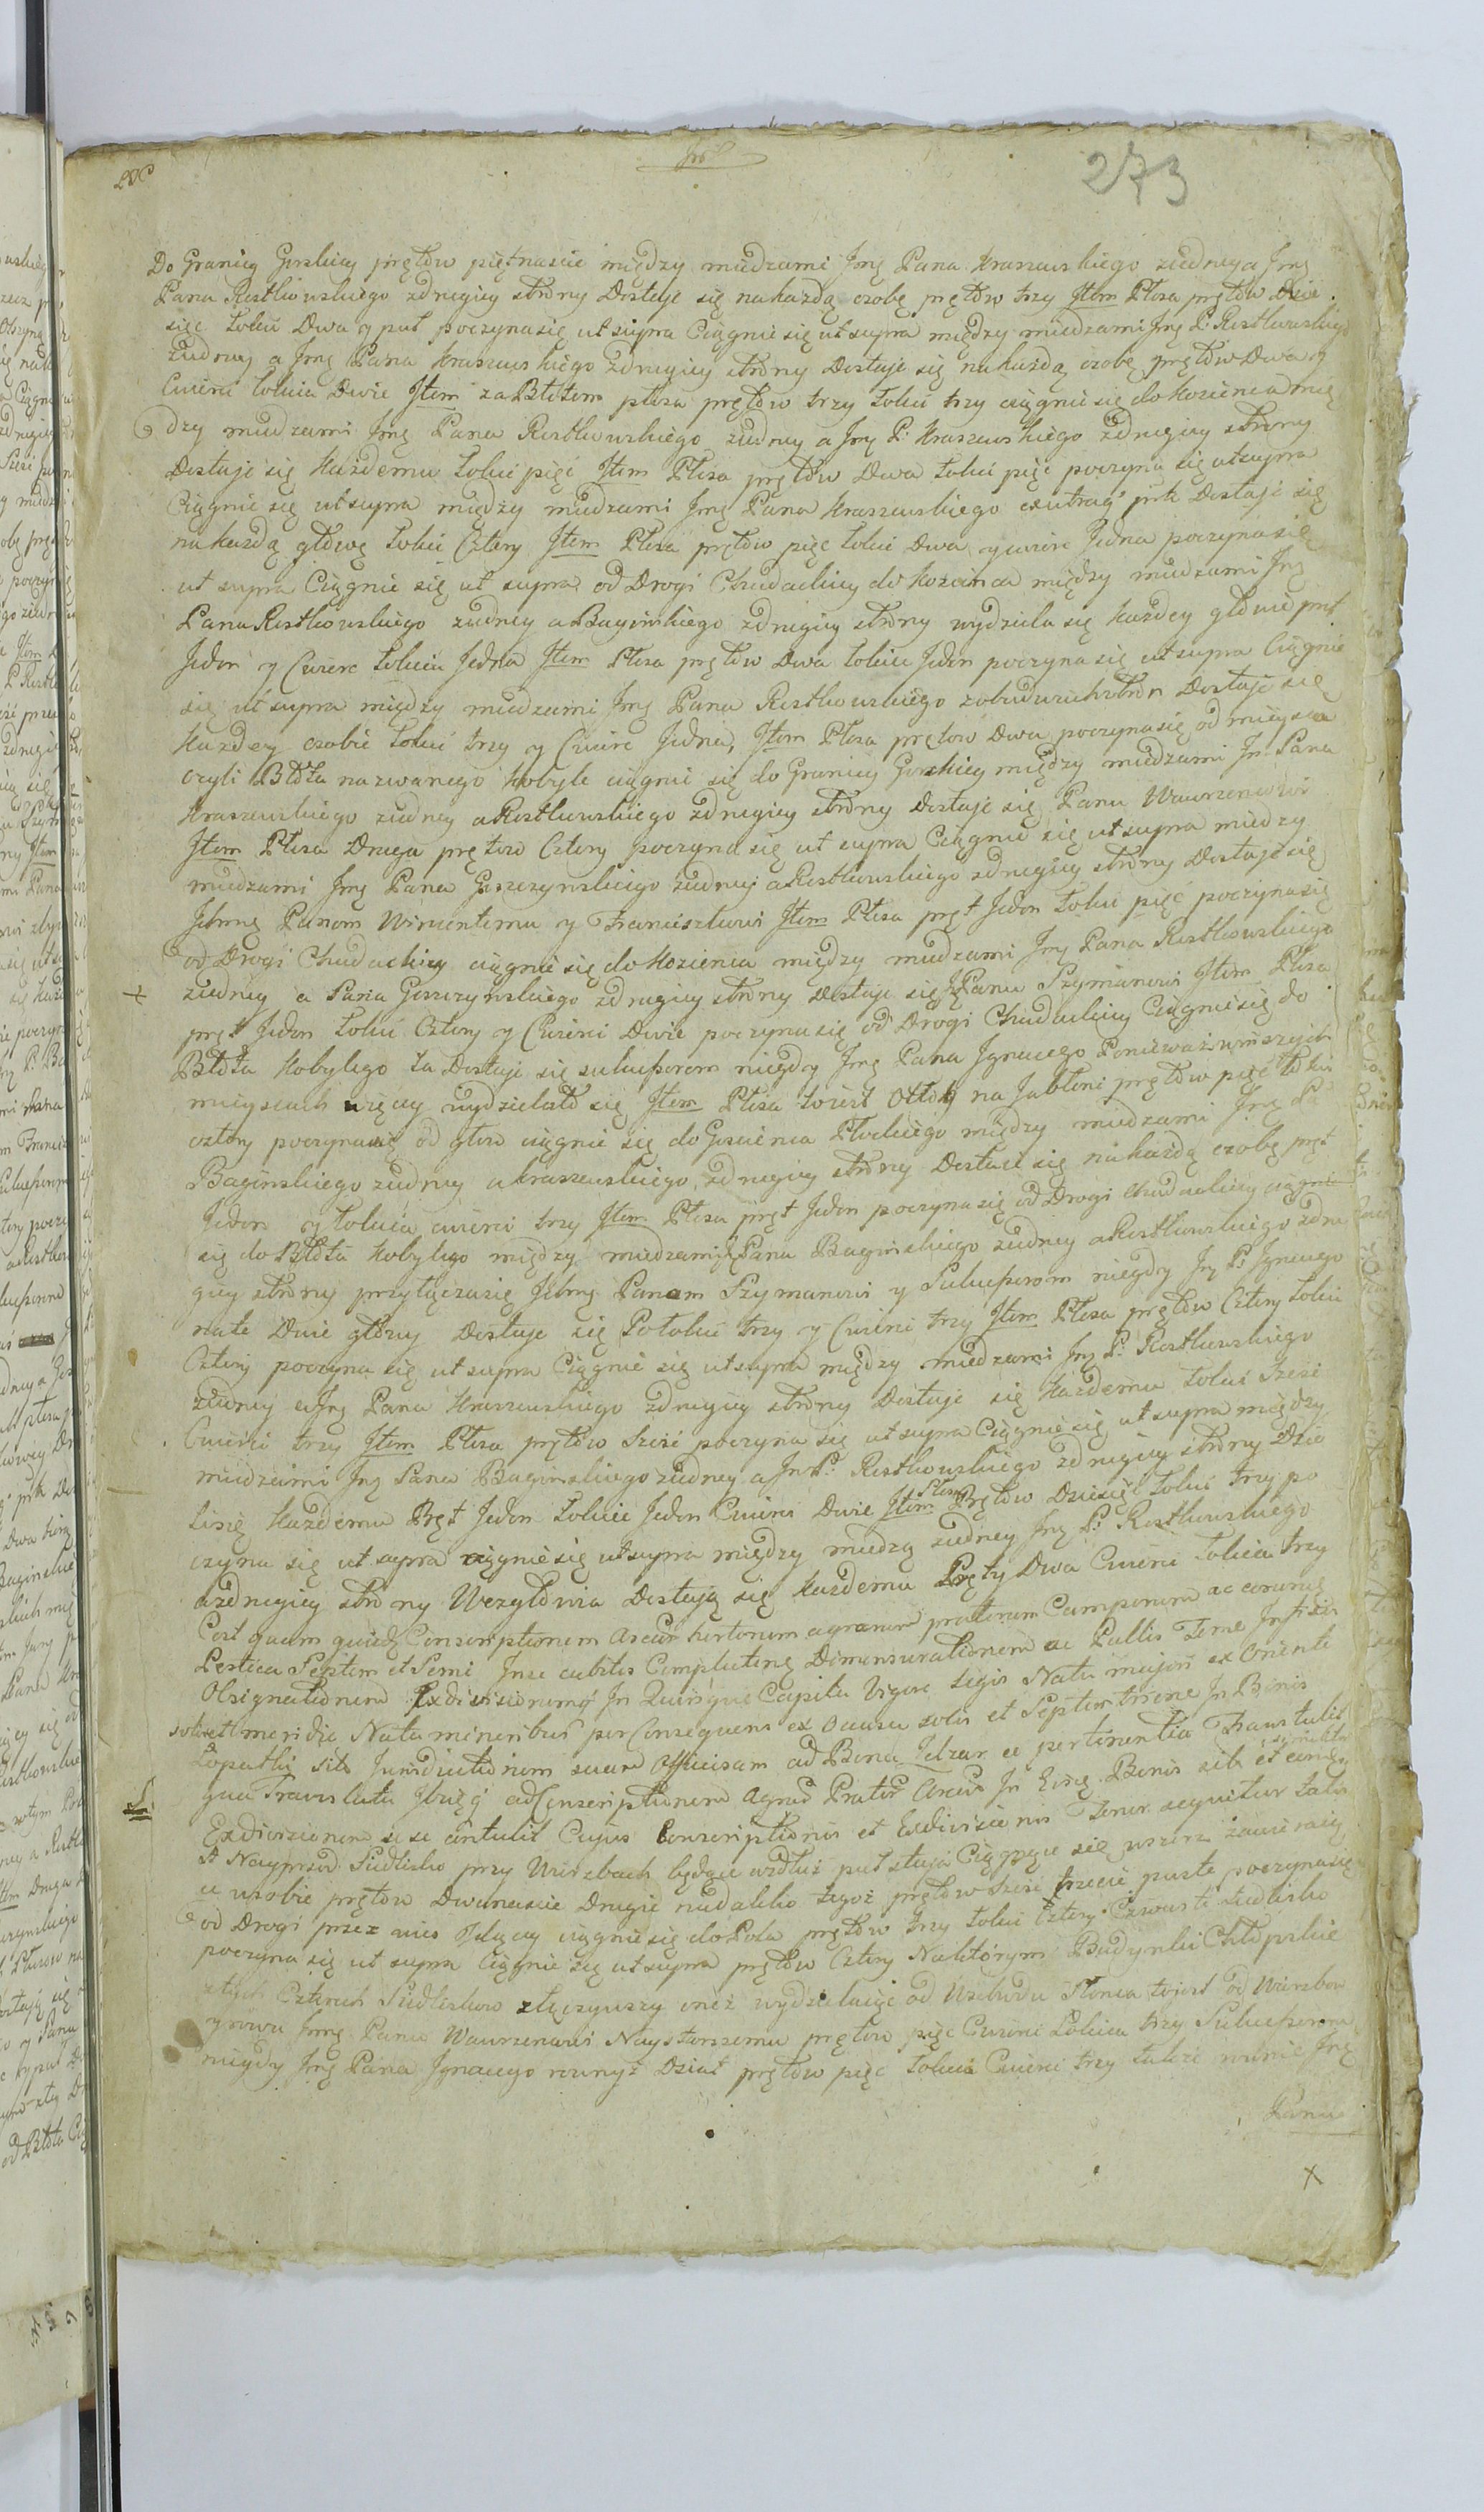 273
Do Granicy Gorskiey prętow piętnascie między miedzami Jmę Pana Kraszewskiego ziedney a Jmę
Pana Rostkowskiego zdrugiey strony Dostaje się na każdą osobę prętow trzy Jtem Płosa prętow Dzie
sięc Łokci Dwa y puł poczyna się ut supra Ciągnie się ut supra między miedzami Jmę P: Rostkowskiego
ziedney a Jmę Pana Kraszewskiego zdrugiey strony Dostaje się na każdą osobę prętow Dwa y
Cwierci Łokcia Dwie Jtem za Błotem płosa prętow trzy Łokci trzy ciągnie się do Koscienca mię
dzy miedzami Jmę Pana Rostkowskiego ziedney a Jmę P: Kraszewskiego zdrugiey strony
Dostaje się Każdemu Łokci pięć Jtem Płosa prętow Dwa Łokci pięć poczyna się ut supra
Ciągnie się ut supra między miedzami Jmę Pana Kraszewskiego ex utraq prte Dostaje się
na każdą głowę Łokci Cztery Jtem Płosa prętow pięc Łokci Dwa y cwierc Jedna poczyna się
ut supra Ciągnie się ut supra od Drogi Chudackiey do między miedzami Jmę
Pana Rostkowskiego ziedney a Baginskiego zdrugiey strony wydziela się Każdey głowie pręt
Jeden y Cwierc Łokcia Jedna Jtem Płosa prętow Dwa Łokieć Jeden poczyna się ut supra Ciągnie
się ut supra między miedzami Jmę Pana Rostkowskiego zobudwuch stron Dostaje się
Każdey osobie Łokci trzy y Cwierc Jedna, Jtem Płosa prętow Dwa poczyna się od mieysca
czyli Błota nazwanego Kobyle ciągnie się do Granicy Gorskiey między miedzami Jm Pana
Kraszewskiego ziedney a Rostkowskiego zdrugiey strony Dostaje się Panu Wawrzencowi
Jtem Płosa Druga prętow Cztery poczyna się ut supra Ciągnie się ut supra miedzy
miedzami Jmę Pana Goszczynskiego ziedney a Rostkowskiego zdrugiey strony Dostaje się
Jchmę Panom Wincentemu y Franciszkowi Jtem Płosa pręt Jeden Łokci pięć poczyna się
od Drogi Chudackiey ciągnie się do między miedzami Jmę Pana Rostkowskiego
ziedney a Pana Goszczynskiego zdrugiey strony Dostaje się Panu Szymanowi Jtem Płosa
pręt Jeden Łokci Cztery y Cwierci Dwie poczyna się od Drogi Chudackiey Ciągnie się do
Błota Kobylego ta Dostaje się sukcessorom niegdy Jmę Pana Jgnacego Ponieważ w
mieyscach więcey wydzielało się Jtem Płosa na Jabłoni prętow pięć Łokci
cztery poczyna się od ciągnie się do Goscienca Płockiego między miedzami Jmę Pa
Baginskiego ziedney a Kraszewskiego zdrugiey strony Dostaje się na każdą osobę pręt
Jeden y Łokcia cwierci trzy Jtem Płosa pręt Jeden poczyna się od Drogi Chudackiey ciągnie
się do Błota Kobylego między miedzami Pana Baginskiego ziedney a Rostkowskiego zdru
giey strony przyłącza się Jchmę Panom Szymanowi y Sukcessorom niegdy Jmę P: Jgnacego
na te Dwie głowy Dostaje się Po Łokci trzy y Cwierci trzy Jtem Płosa prętow Cztery Łokci
Cztery poczyna się ut supra Ciągnie się ut supra między miedzami Jmę P: Rostkowskiego
ziedney a Jmę Pana Kraszewskiego zdrugiey strony Dostaje się Każdemu Łokci Szesć
Cwierci trzy Jtem Płosa prętow Szesć poczyna się ut supra Ciągnie się ut supra między
miedzami Jmę Pana Baginskiego ziedney a Jm P: Rostkowskiego zdrugiey strony Dzie
li się Każdemu Pręt Jeden Łokiec Jeden Cwierci Dwie Jtem Płosa Prętow Dziesięć Łokci trzy po
czyna się ut supra ciągnie się ut supra między miedzą ziedney Jmę P: Rostkowskiego
a zdrugiey strony Wezgłowia Dostają się Każdemu Pręty Dwa Cwierci Łokcia trzy
Post quam quidem Conscriptionem Arearum hortorum agrorum pratorum Camporum ac
Pertica Septem et Semi Jn se cubitos Complectente Dimensurationem ac Pallis Terrae Jnfixis
Obsignationem Exdivisionemq Jn Quinque Capita Vigore Legis Natu majori ex Oriente
solis et meridie Natu minoribus per Consequens ex Occasu solis et Septemtrione Jn Bonis
Łopatki sito Jurisdictionem suam Officiosam ad Bona Jelzar ac pertinentia Transtulit
qua Translata Jbiq ad Conscriptionem Agror Prator Arear Jn Eisq Bonis sit et eand
Exdivisionem se se contulit Cujus Conscriptionis et Exdivisionis Tenor sequitur talis
A Nayprzod Siedlisko przy Wierzbach będące wzdłuż puł staja Ciągnące się wszerz zawieraią
ce w sobie prętow Dwanascie Drugie niedaleko tegoż prętow Szesć trzecie puste poczyna się
od Drogi przez wies Jdącey ciągnie się do Pola prętow trzy Łokci Cztery Czwarte siedlisko
poczyna się ut supra Ciągnie się ut supra prętow Cztery Na ktorym Budynki Chłopskie
ztych Czterech Siedliskow złączywszy oneż wydzielaiąc od Wschodu Słonca to jest od Wierzbow
y rowu Jmę Panu Wawrzencowi Naystarszemu prętow pięc Cwierci Łokcia trzy Sukcessorom
niegdy Jmę Pana Jgnacego rownyż Dział prętow pięc Łokcia Cwierci trzy także rownie Jmę
Panu